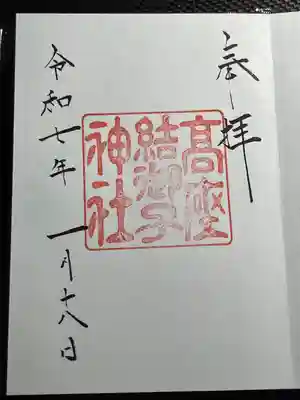 奉拝
髙座
結御子
神社
令和七年 一月十八日